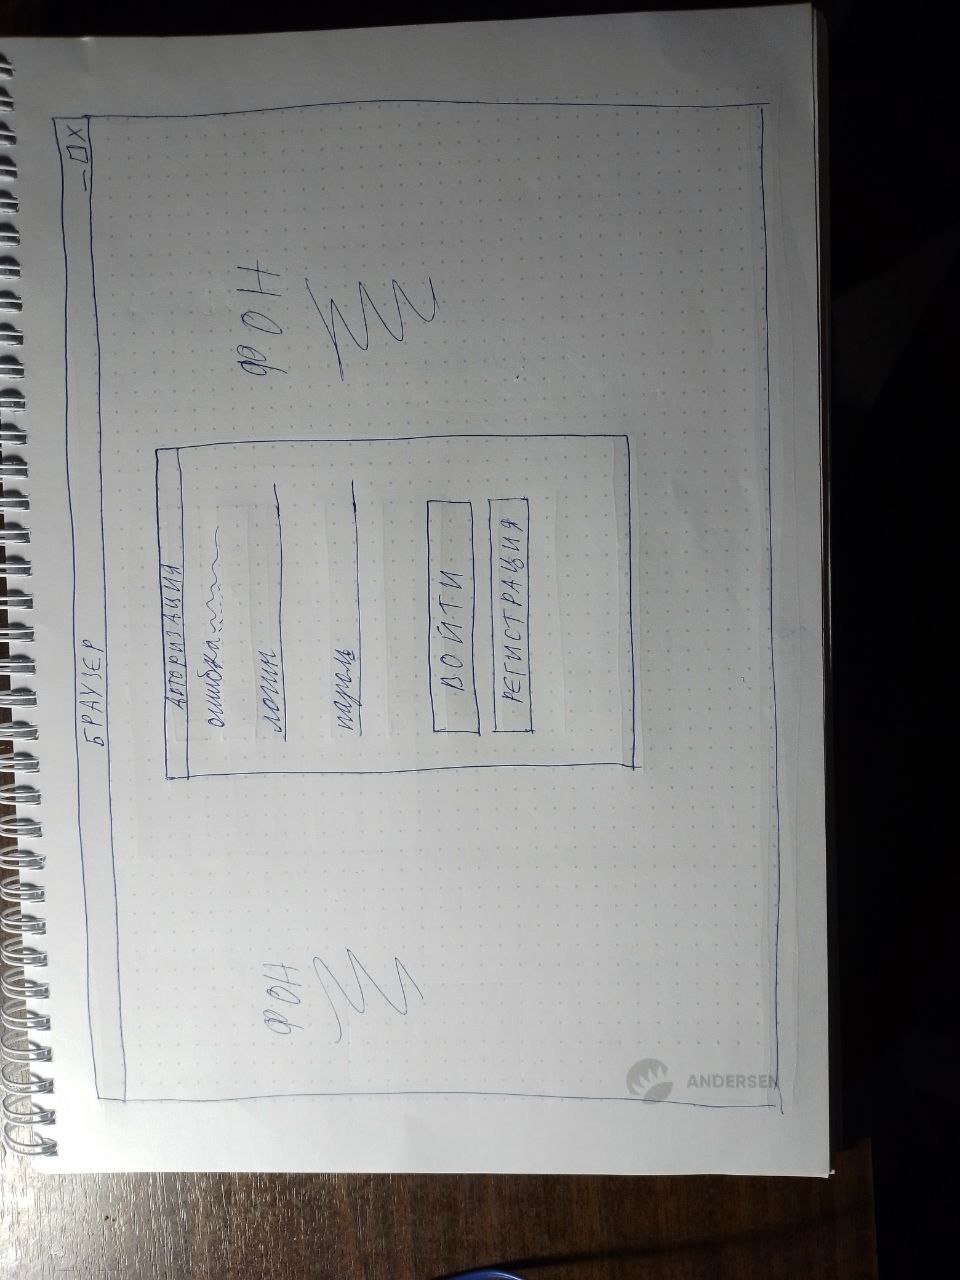 БРАУЗЕР
Авторизация
ошибка
логин
пароль
ВОЙТИ
РЕГИСТРАЦИЯ
ФОН
ФОН
ANDERSEN